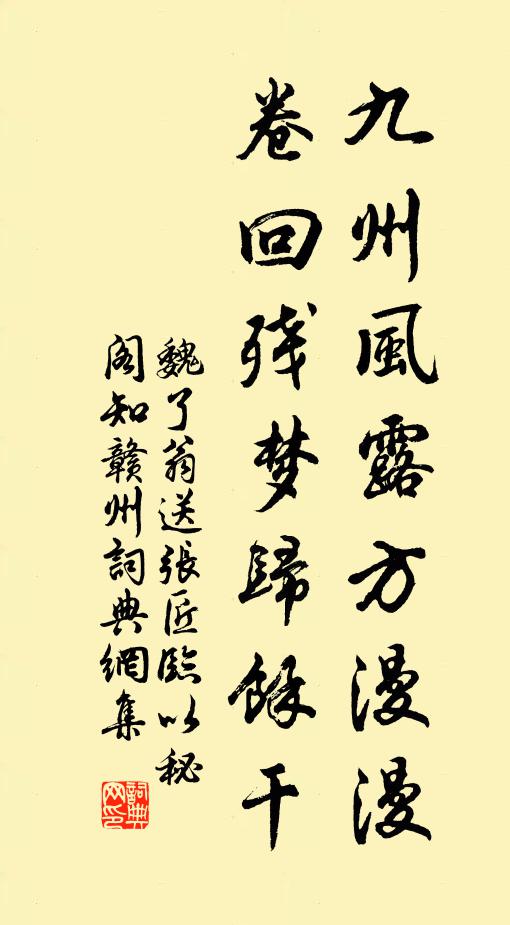 九州風露方漫漫
卷回残梦歸餘干
魏了翁送張匠臨以秘
阁知贛州詞典網集
詞典
网印